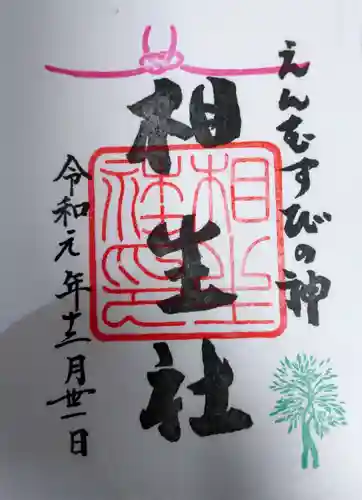 えんむすびの神
相生社
令和元年十二月卅一日